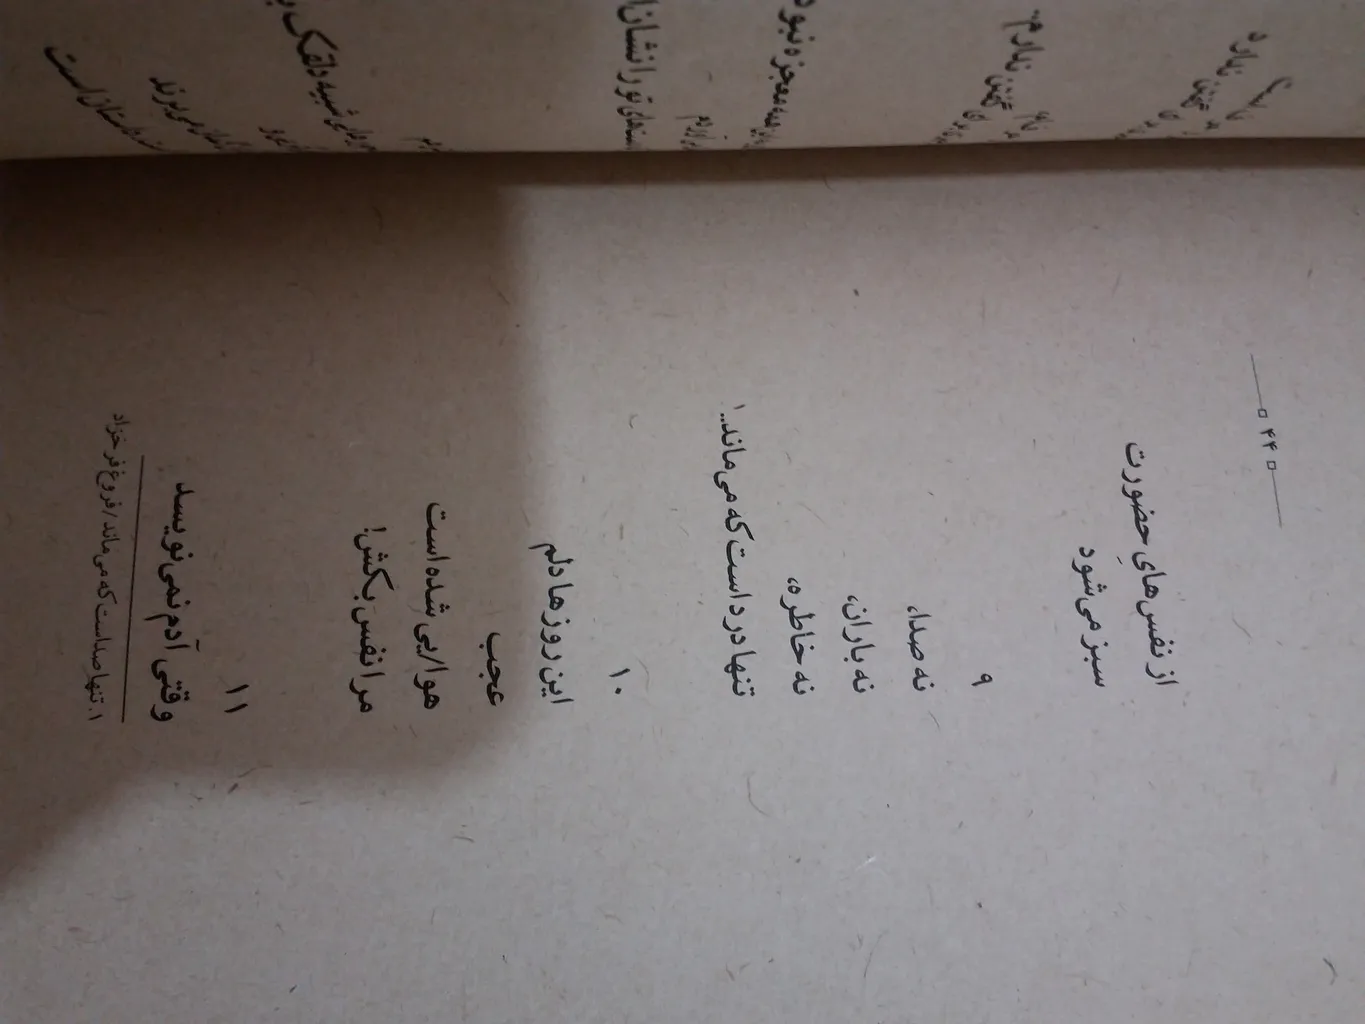 ۴۴
از نفس‌هایِ حضورت
سبز می‌شود
۹
نه صدا،
نه باران،
نه خاطره،
تنها درد است که می‌ماند..۱
۱۰
این روزها دلم
عجب
هوا/یی شده است
مرا نفَس بَکش!
۱۱
وقتی آدم نمی‌نویسد
۱. تنها صداست که می‌ماند/ فروغ فرخزاد
معجزه نبود
تو را نشان
شبیه دلقک